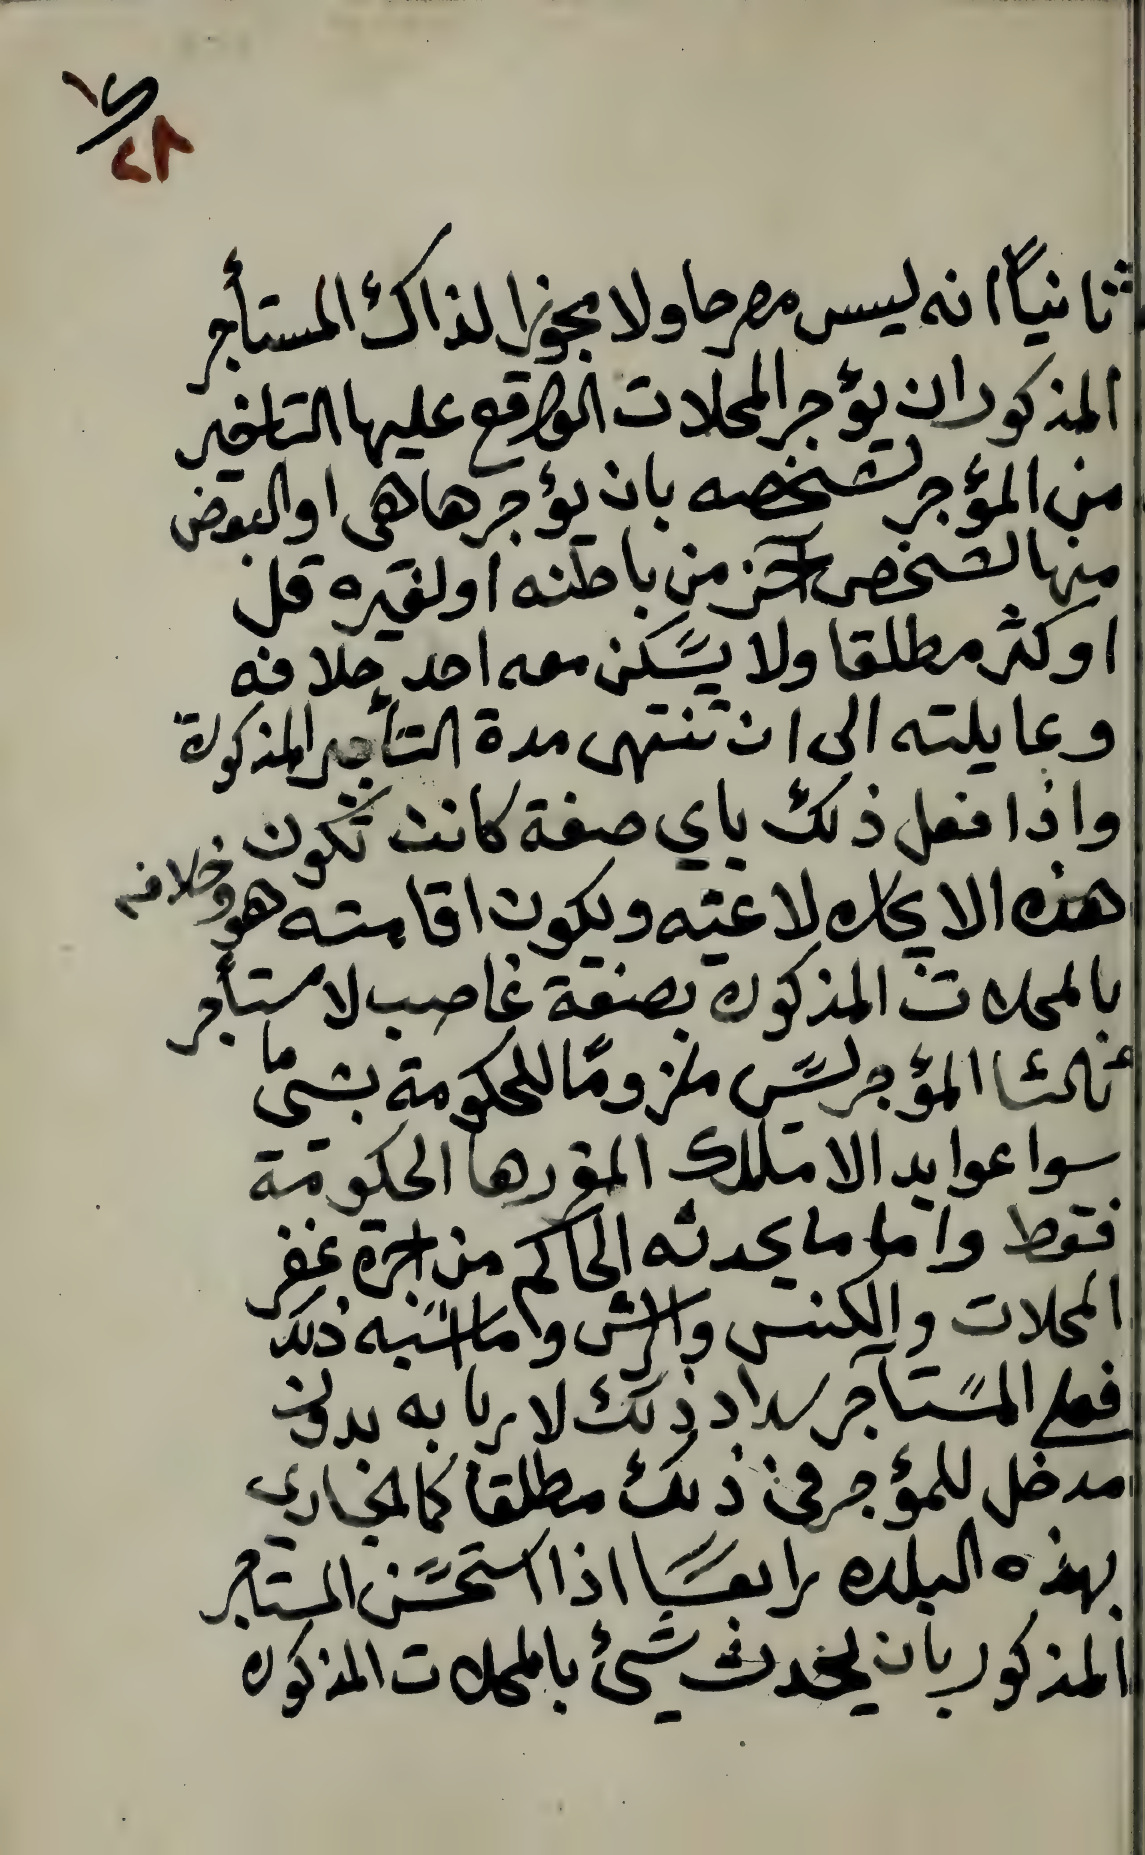 ثانياً انه ليس مصرحا ولا مجوزا لذاك المستأجر
المذكور ان يؤجر المحلات الواقع عليها التاخير
من المؤجر لشخصه بان يؤجرها هى او البعض
منها لشخص آخر من باطنه او لغيره قل
او كثر مطلقا ولا يسكن معه احد خلافه
وعايلته الى ان تنتهى مدة التأجير المذكورة
واذا فعل ذلك باي صفة كانت تكون
هذه الايجاره لاغيه ويكون اقامته هو وخلافه
بالمحلات المذكوره بصفة غاصب لا مستأجر
ثالثا المؤجر ليس ملزومًا للحكومة بشى ما
سوا عوايد الاملاك المقررها الحكومة
فقط واما ما يحدثه الحاكم من اجرة غفر
المحلات والكنس والرش وما اشبه ذلك
فعلى المستآجر سداد ذلك لاربابه بدون
مدخل للمؤجر فى ذلك مطلقا كالجاري
بهذه البلده رابعًا اذا استحسن المستاجر
المذكور بان يحدث شيئ بالمحلات المذكوره